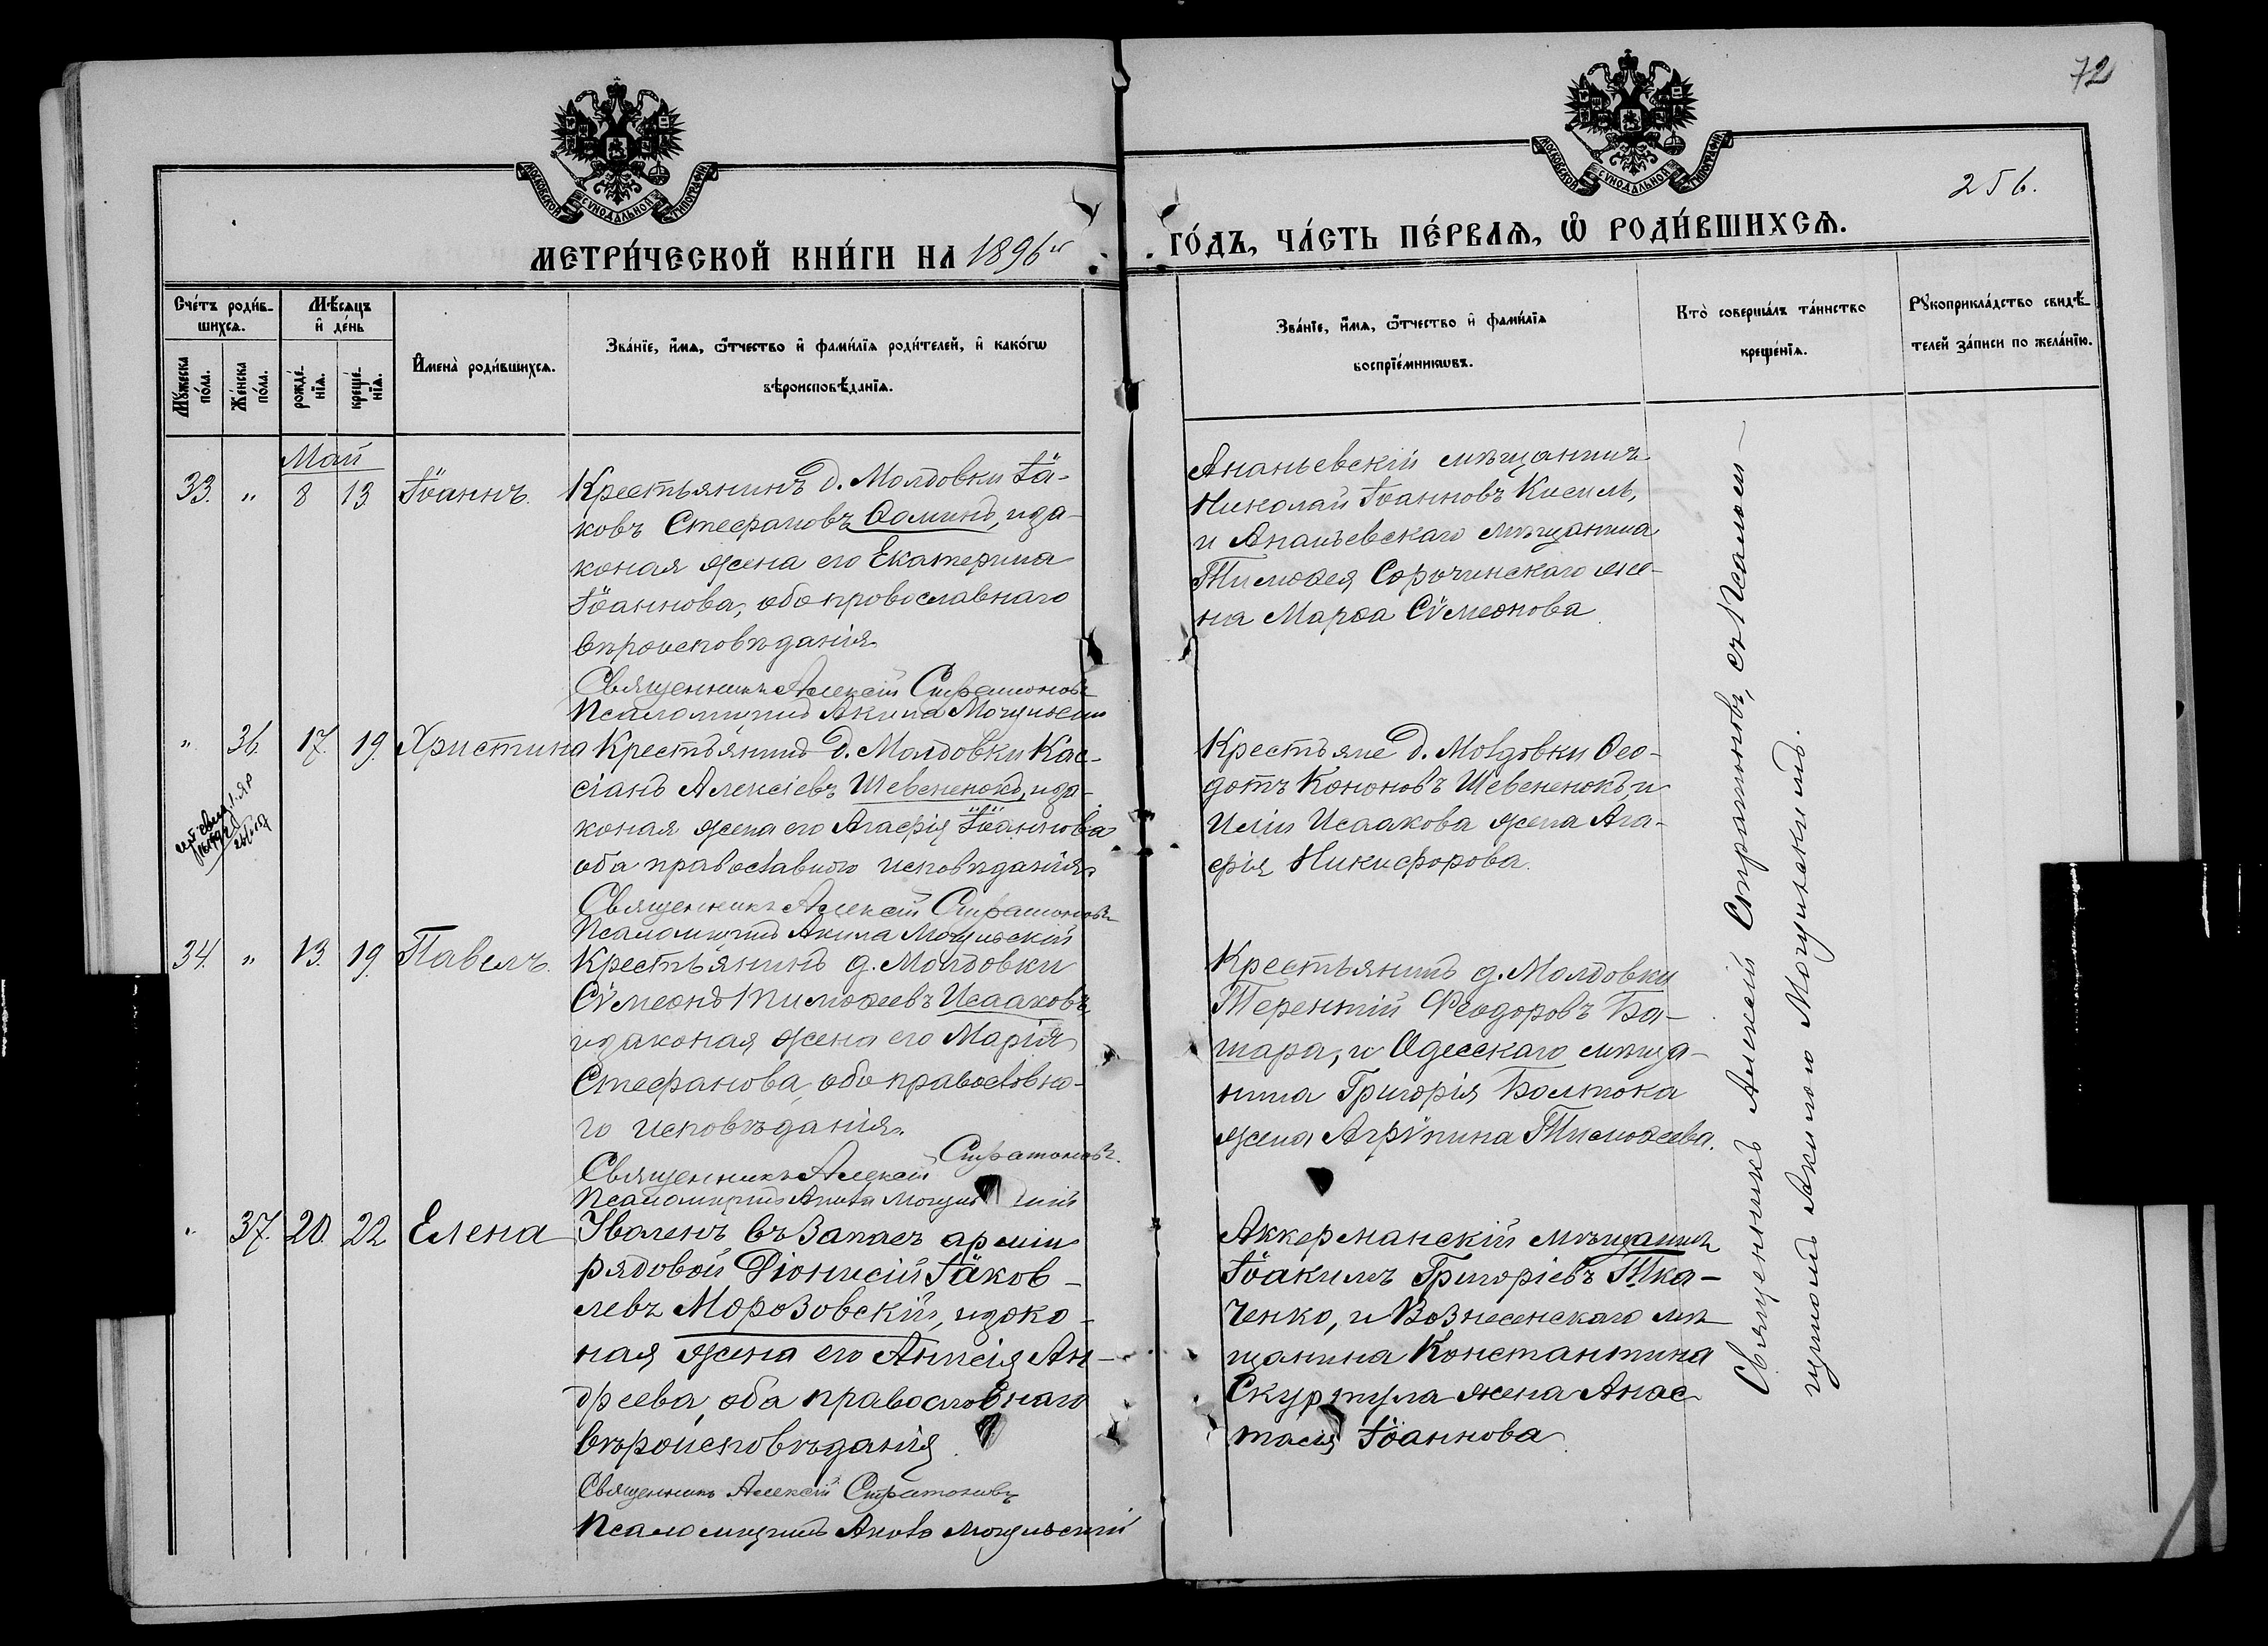 72
МОСКОВСКОЙ СѴНОДАЛЬНОЙ ТИПОГРАФІИ
МОСКОВСКОЙ СѴНОДАЛЬНОЙ ТИПОГРАФІИ
256.
МЕТРИ́ЧЕСКОЙ КНИ́ГИ НА 1896й
ГО́ДЪ, ЧА́СТЬ ПЕ́РВАѦ, Ѡ҆ РОДИ́ВШИХСѦ.
Сче́тъ роди́в-
шихсѧ.
Мꙋ́жеска
по́ла.
Же́нска
по́ла.
Мѣ́сѧцъ
и҆ де́нь
рожде́-
нїѧ.
креще́-
нїѧ.
И҆мена̀ роди́вшихсѧ.
Зва́нїе, и҆́мѧ, ѻ҆́тчество и҆ фами́лїѧ роди́телей, и҆ како́гѡ
вѣроисповѣ́данїѧ.
Зва́нїе, и҆́мѧ, ѻ҆́тчество и҆ фами́лїѧ
воспрїе́мникѡвъ.
Кто̀ соверша́лъ та́инство
креще́нїѧ.
Рꙋкоприкла́дство свидѣ́-
телей за́писи по жела́нїю.
Май
33. " 8 13 Іоаннъ.
Крестьянинъ д. Молдовки Іа-
ковъ Стефановъ Ѳоминъ, и за-
коная жена его Екатерина
Іоаннова, оба провославнаго
вѣроисповѣданія
Священникъ Алексій Стратоновъ
Псаломщикъ Акила Могульскій
Ананьевскій мѣщанинъ
Николай Іоанновъ Кисиль,
и Ананьевскаго мѣщанина
Тимоѳея Сорочинскаго же-
на Марѳа Сѵмеонова
" 36. 17. 19. Христина
Крестьянинъ д. Молдовки Кас-
сіанъ Алексіевъ Шевененокъ, и за-
коная жена его Агафія Іоаннова
оба православнаго исповѣданія
Священникъ Алексій Стратоновъ
Псаломщикъ Акила Могульскій
Крестьяне д. Молдовки Ѳео-
дотъ Кононовъ Шевененокъ и
Иліи Исаакова жена Ага-
фія Никифорова.
34. " 13. 19. Павелъ.
Крестьянинъ д. Молдовки
Сѵмеонъ Тимоѳеевъ Исааковъ
и законая жена его Марія
Стефанова, оба православна-
го исповѣданія.
Священникъ Алексій Стратоновъ.
Псаломщикъ Акила
Крестьянинъ д. Молдовки
Терентій Феодоровъ Ба-
тара, и Одесскаго мѣща-
нина Григорія Болтока
жена Агрѵпина Тимоѳеева.
" 37. 20. 22 Елена
Уволенъ въ запасъ арміи
рядовой Діонисій Іаков-
левъ Морозовскій, и зако-
ная жена его Анисія Ан-
дреева, оба православнаго
вѣроисповѣданія
Священникъ Алексій Стратоновъ
Псаломщикъ Акила Могульскій
Аккерманскій мѣщанинъ
Іоакимъ Григоріевъ Тка-
ченко, и Вознесенскаго мѣ-
щанина Константина
Скуртула жена Анас-
тасія Іоаннова
Священникъ Алексій Стратоновъ, съ Псалом-
щикомъ Акилою Могульскимъ.